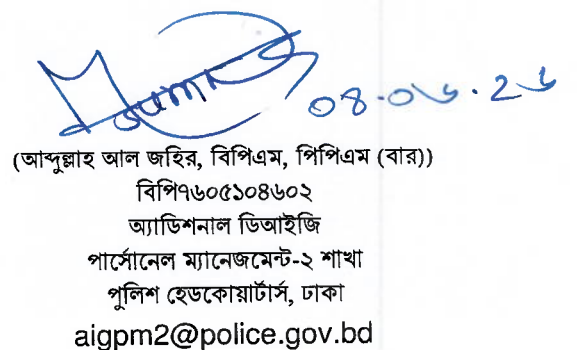 ০৪.০৬.২৬
(আব্দুল্লাহ আল জহির, বিপিএম, পিপিএম (বার))
বিপি৭৬০৫১০৪৬০২
অ্যাডিশনাল ডিআইজি
পার্সোনেল ম্যানেজমেন্ট-২ শাখা
পুলিশ হেডকোয়ার্টার্স, ঢাকা
aigpm2@police.gov.bd